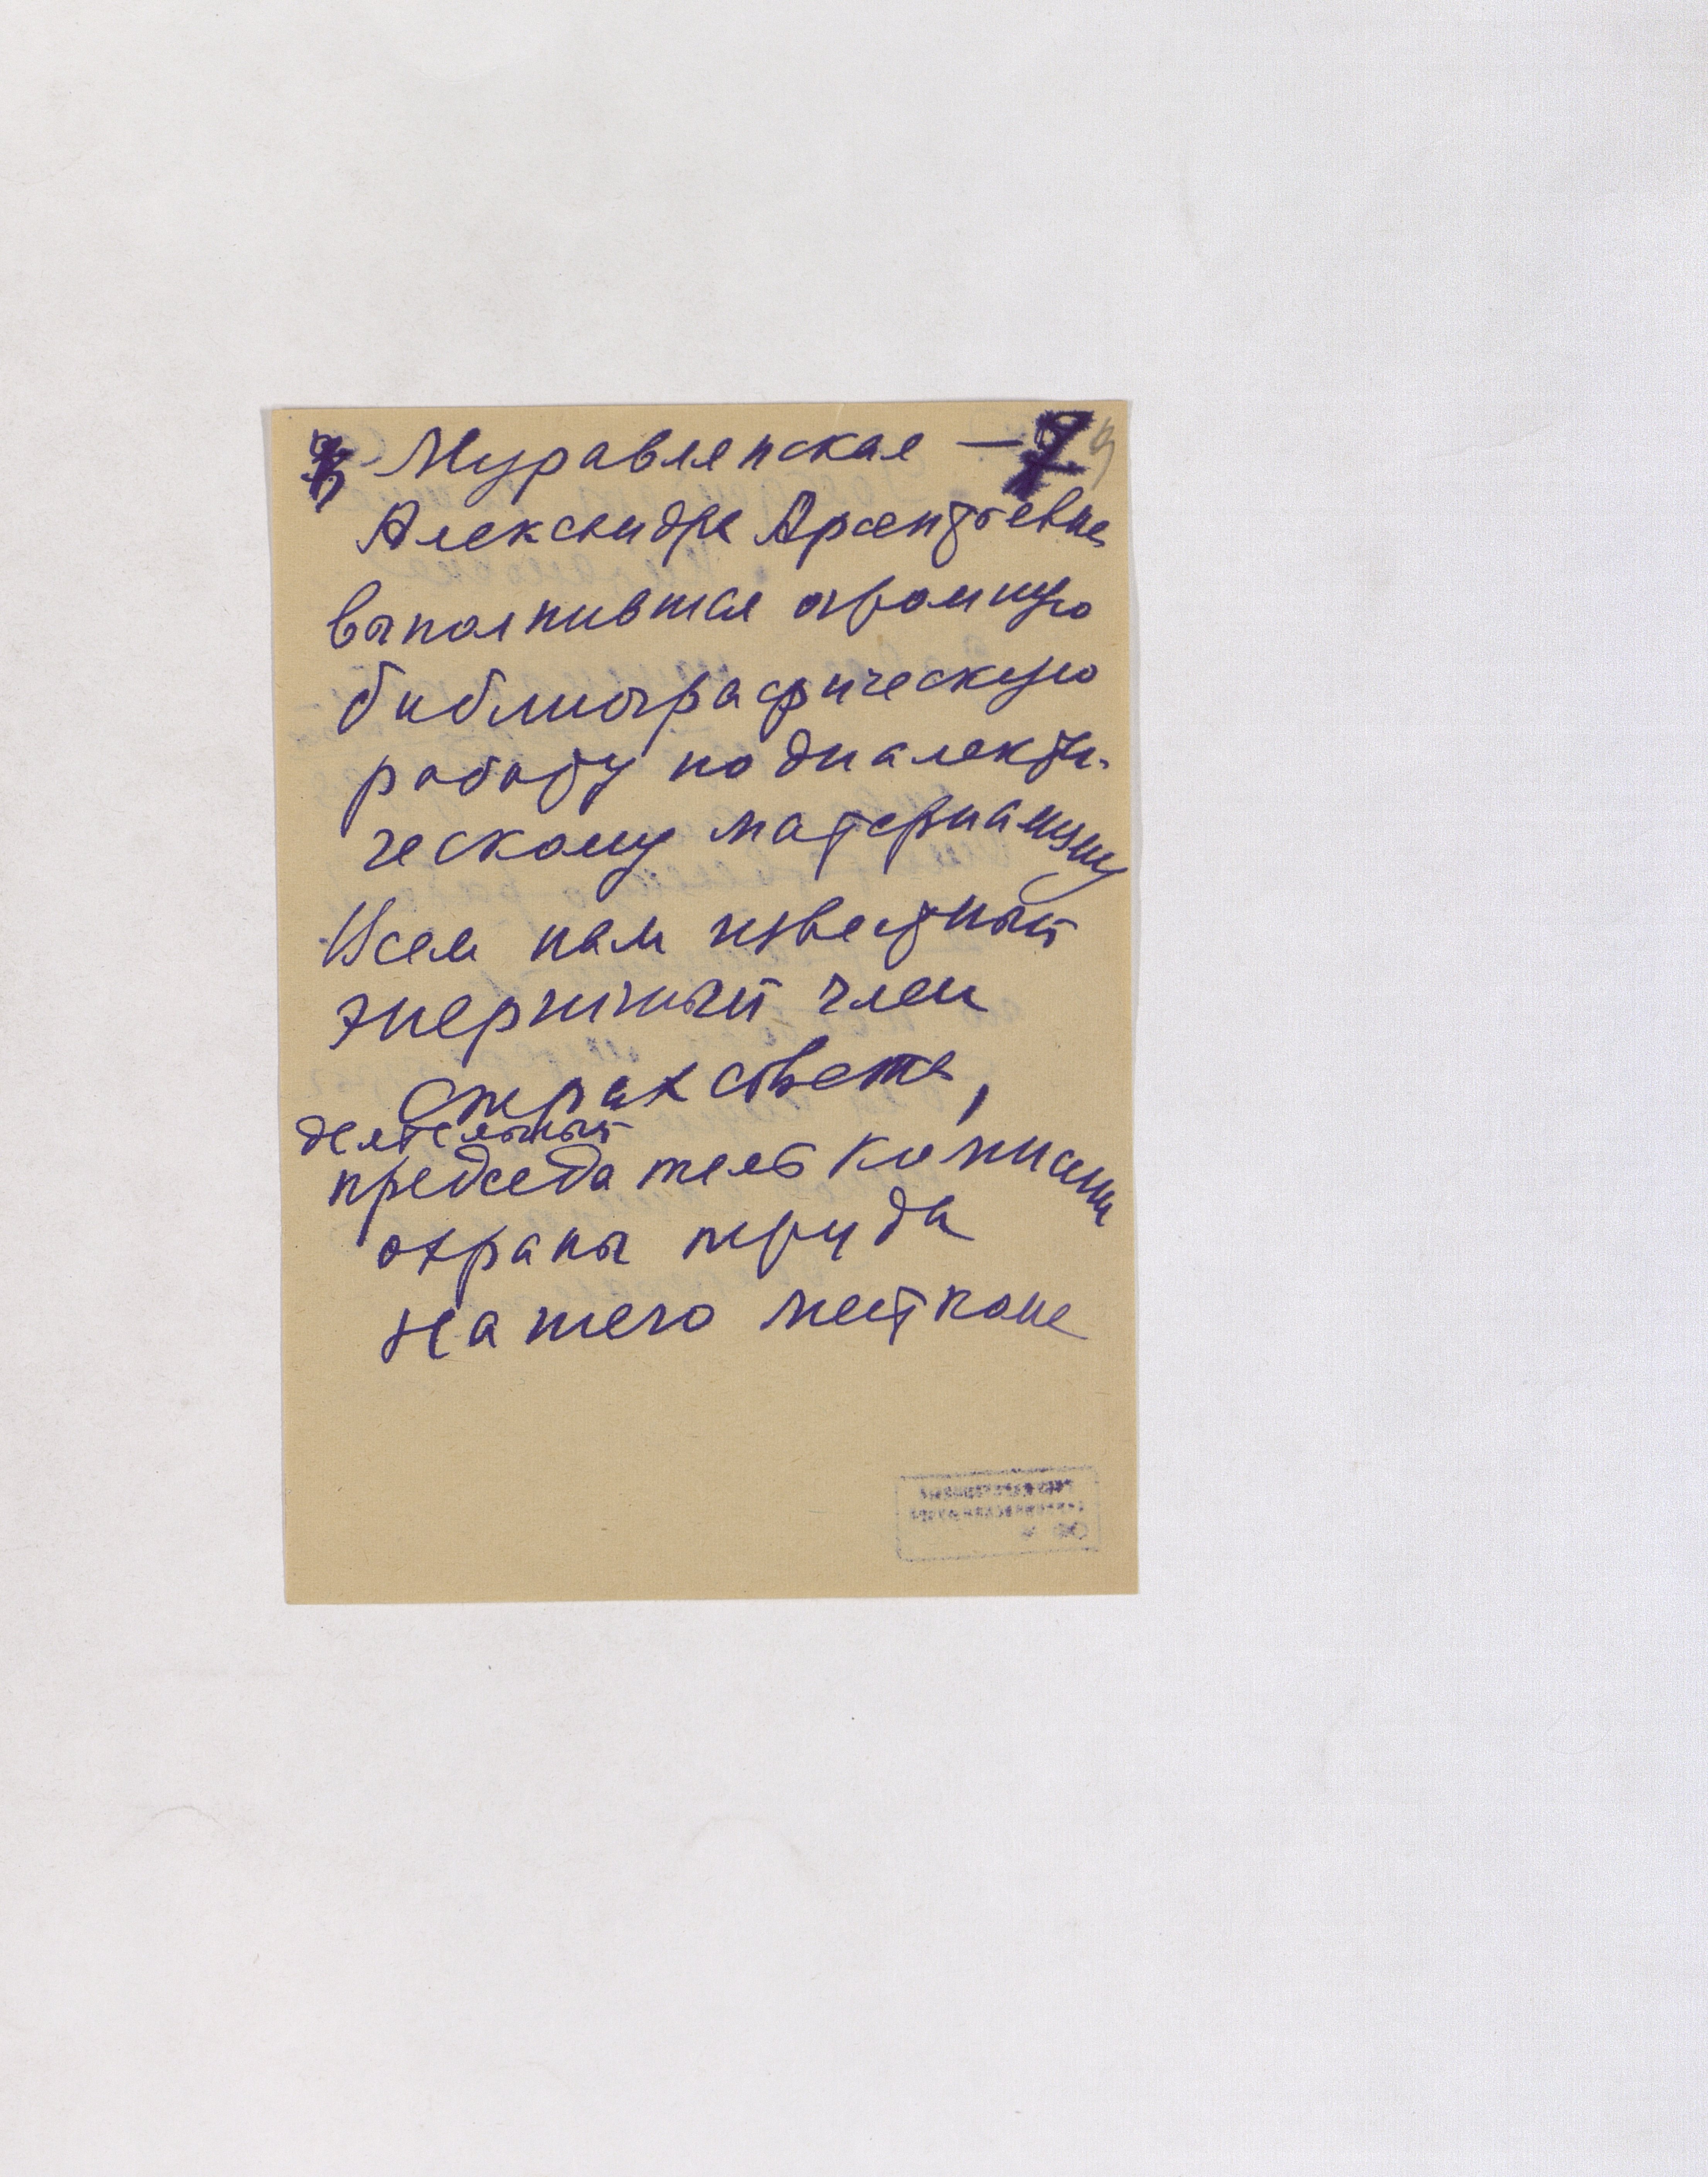 Муравлянская — 7 9
Александра Арсентьевна
выполнившая огромную
библиографическую
работу по диалекти-
ческому материализму
Всем нам известный
энергичный член
страхсовета,
деятельный
председатель комиссии
охраны труда
нашего месткома